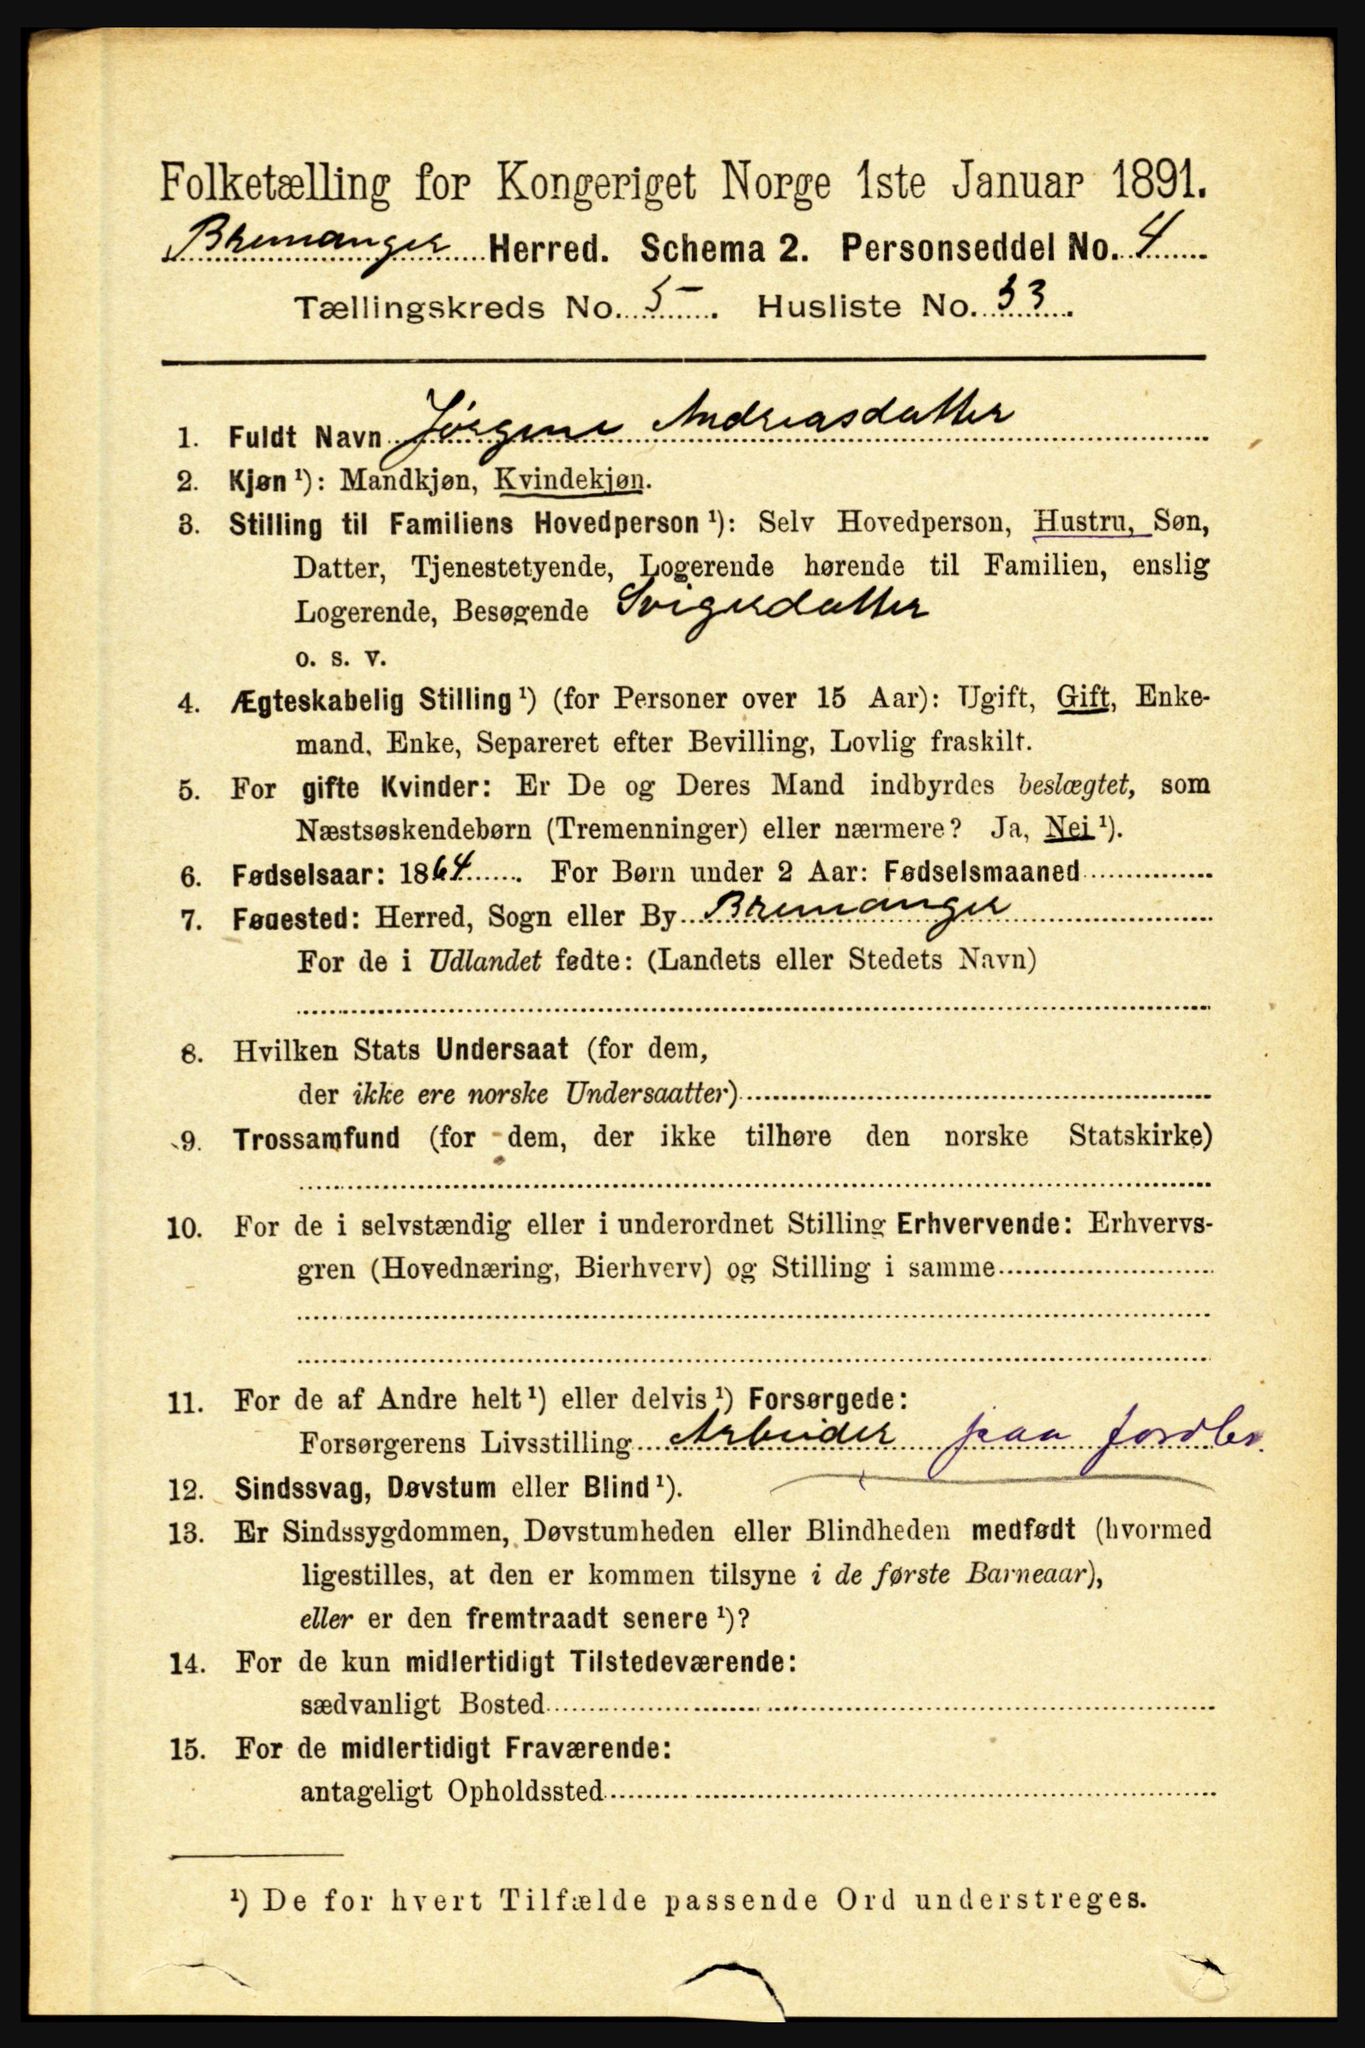 Folketælling for Kongeriget Norge 1ste Januar 1891.
Bremanger Herred. Schema 2. Personseddel No. 4
Tællingskreds No. 5. Husliste No. 33.
1. Fuldt Navn Jørgine Andreasdatter
2. Kjøn ¹): Mandkjøn, Kvindekjøn.
3. Stilling til Familiens Hovedperson ¹): Selv Hovedperson, Hustru, Søn,
Datter, Tjenestetyende, Logerende hørende til Familien, enslig
Logerende, Besøgende Svigerdatter
o. s. v.
4. Ægteskabelig Stilling ¹) (for Personer over 15 Aar): Ugift, Gift, Enke-
mand, Enke, Separeret efter Bevilling, Lovlig fraskilt.
5. For gifte Kvinder: Er De og Deres Mand indbyrdes beslægtet, som
Næstsøskendebørn (Tremenninger) eller nærmere? Ja, Nei ¹).
6. Fødselsaar: 1864. For Børn under 2 Aar: Fødselsmaaned
7. Fødested: Herred, Sogn eller By Bremanger
For de i Udlandet fødte: (Landets eller Stedets Navn)
8. Hvilken Stats Undersaat (for dem,
der ikke ere norske Undersaatter)
9. Trossamfund (for dem, der ikke tilhøre den norske Statskirke)
10. For de i selvstændig eller i underordnet Stilling Erhvervende: Erhvervs-
gren (Hovednæring, Bierhverv) og Stilling i samme
11. For de af Andre helt ¹) eller delvis ¹) Forsørgede:
Forsørgerens Livsstilling Arbeider paa Jordbr.
12. Sindssvag, Døvstum eller Blind ¹).
13. Er Sindssygdommen, Døvstumheden eller Blindheden medfødt (hvormed
ligestilles, at den er kommen tilsyne i de første Barneaar),
eller er den fremtraadt senere ¹)?
14. For de kun midlertidigt Tilstedeværende:
sædvanligt Bosted
15. For de midlertidigt Fraværende:
antageligt Opholdssted
¹) De for hvert Tilfælde passende Ord understreges.